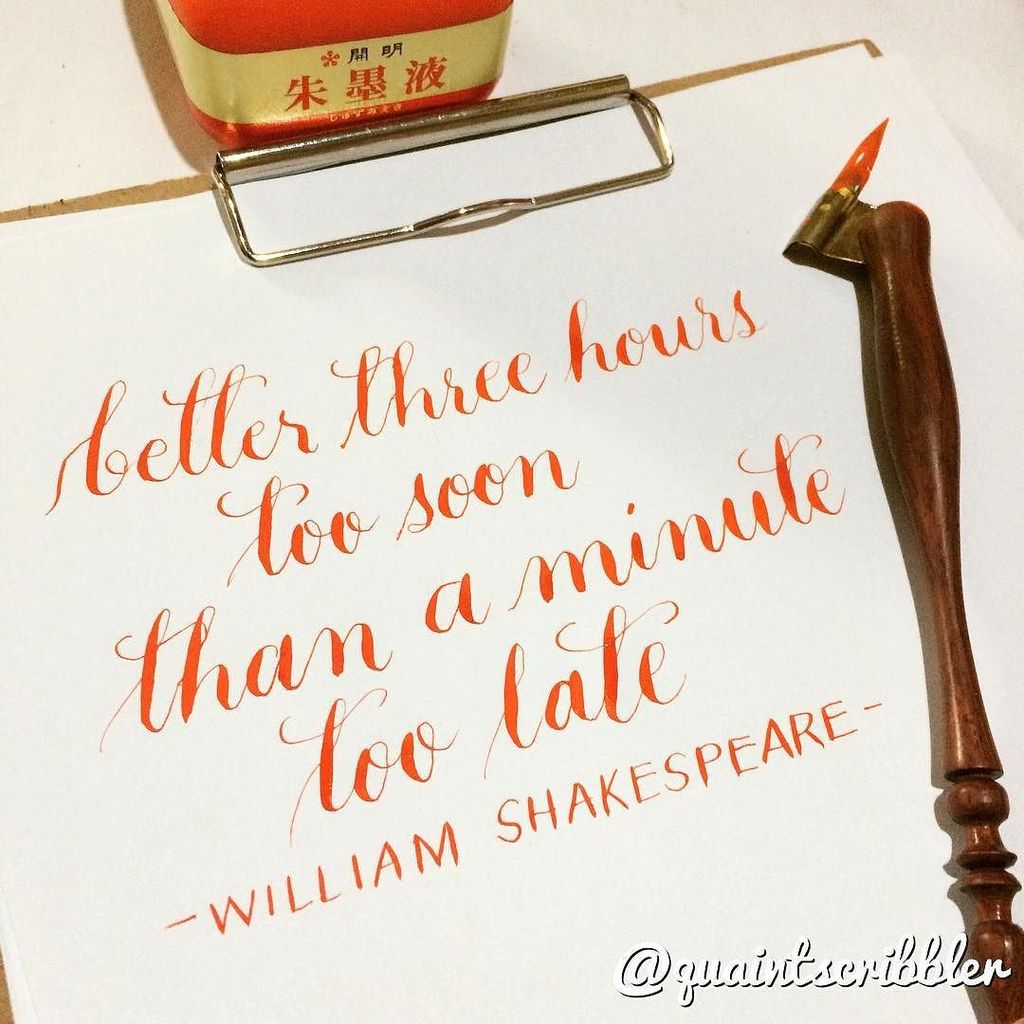 開明
朱墨液
better three hours
too soon
than a minute
too late
-WILLIAM SHAKESPEARE-
@quaintscribbler